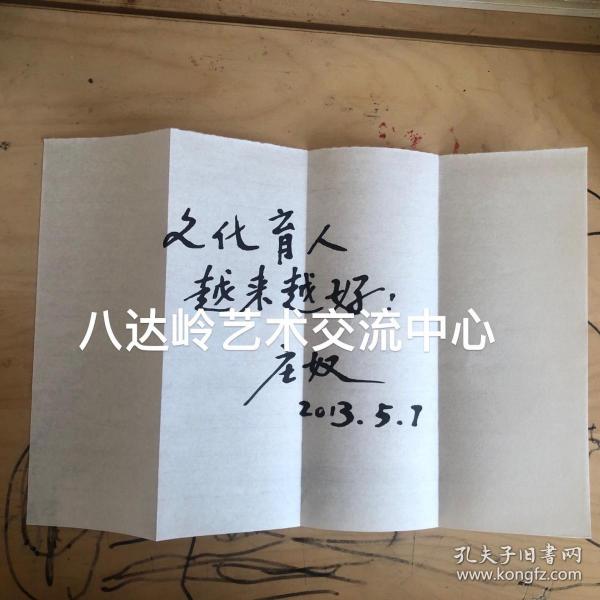 文化育人
越来越好！
八达岭艺术交流中心
庄奴
2013.5.7
孔夫子旧书网
www.kongfz.com